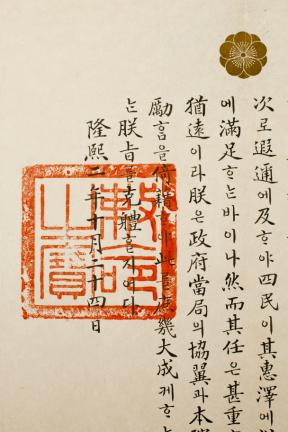 次로遐邇에及ᄒᆞ야四民이其惠澤에
에滿足ᄒᆞᄂᆞᆫ바이나然而其任은甚重
猶遠이라朕은政府當局의協翼과本
勵ᄒᆞᆷ을倚賴ᄒᆞ야此를庶幾大成케ᄒᆞ
ᄂᆞᆫ朕旨를克體ᄒᆞᆯ지어다
隆熙二年十月二十四日
勅命
之寶